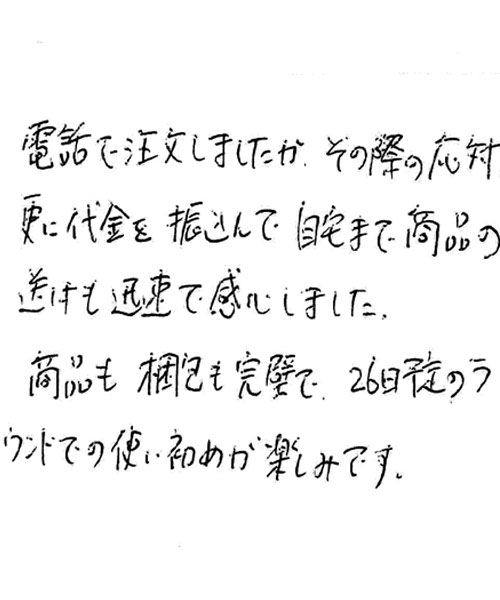 電話で注文しましたが、その際の応対
更に代金を振込んで自宅まで商品の
送付も迅速で感心しました。
商品も梱包も完璧で、26日予定のラ
ウンドでの使い初めが楽しみです。